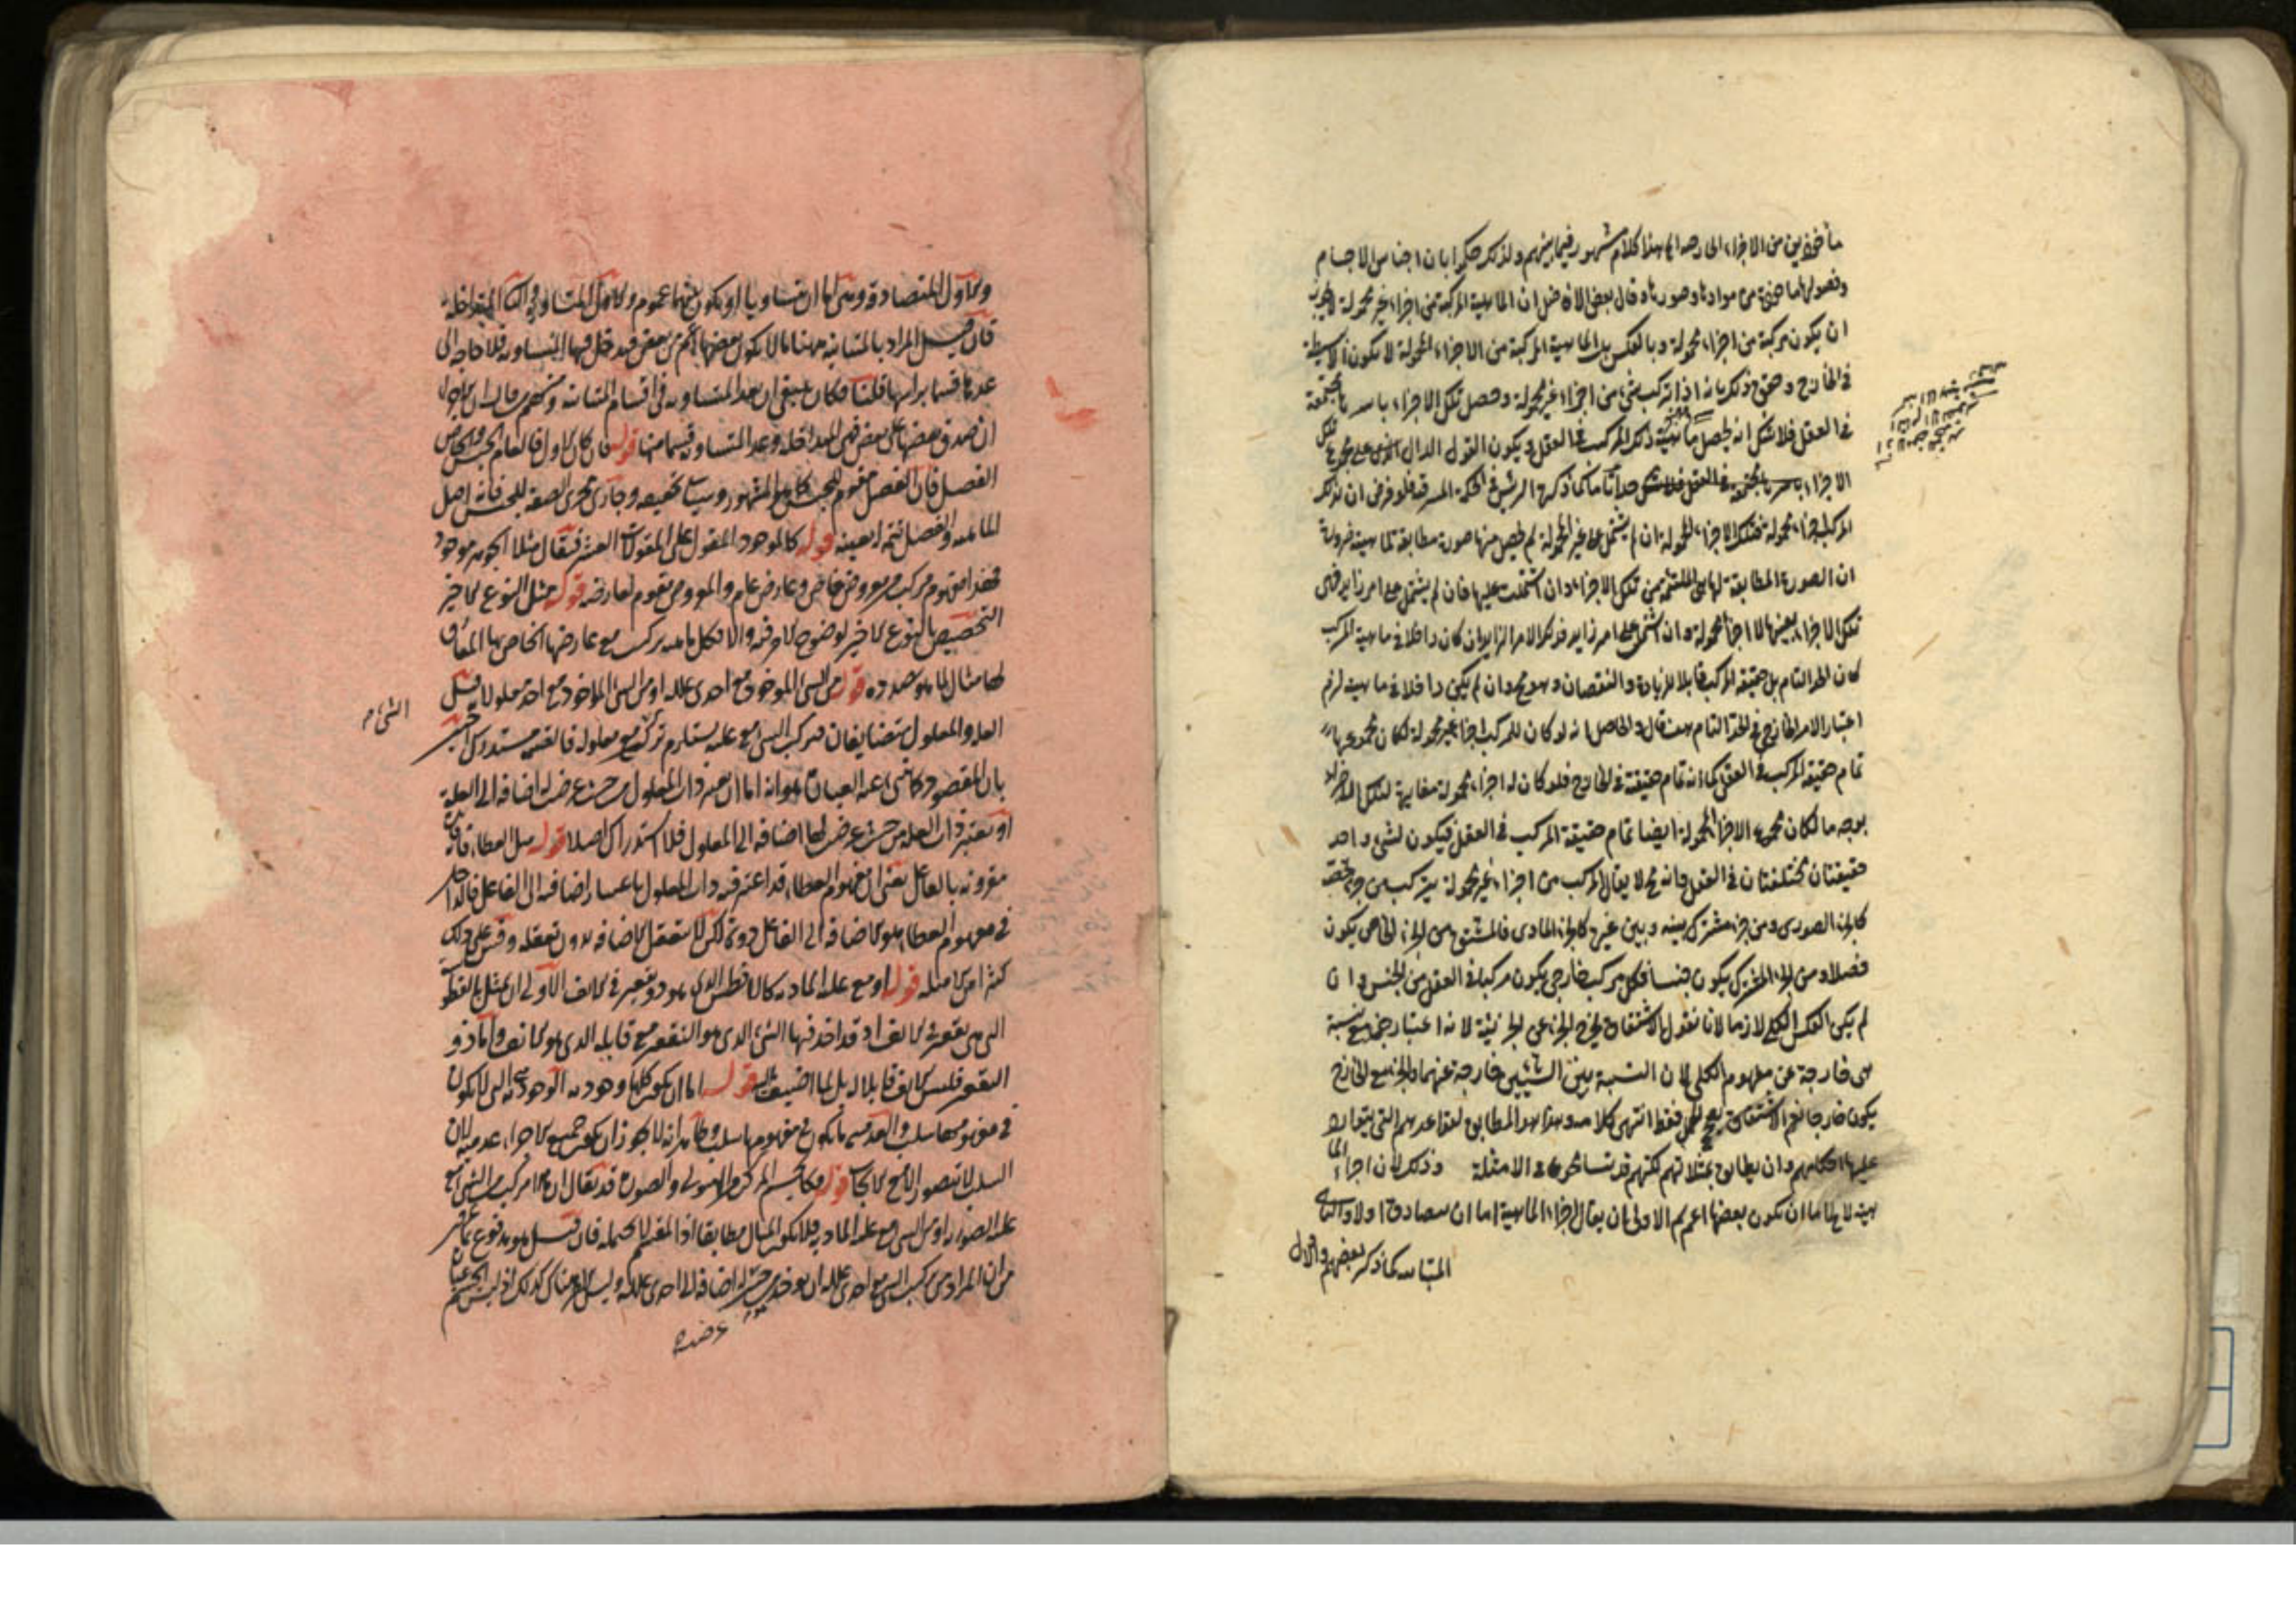 مأخوذين من الاجزاء الخارجية هذا كلام مشهور فيما بينهم ولذلك حكموا بان اجناس الاجسام
وفصولها مأخوذة من موادها وصورها وقال بعض الافاضل ان الماهية المركبة من اجزاء غير محمولة لا يجوز
ان يكون مركبة من اجزاء محمولة وبالعكس بل الماهية المركبة من الاجزاء المحمولة لا تكون الا بسيطة
في الخارج وحقق ذلك بانه اذا تركب شئ من اجزاء غير محمولة وحصل تلك الاجزاء باسرها مجتمعة
في العقل فلا شك انه يحصل ماهية ذلك المركب في العقل ويكون القول الدال على مجموع تلك
الاجزاء حدا تاما كما ذكره الرئيس في الحكمة المشرقية فلو فرض ان لذلك
المركب اجزاء محمولة فتلك الاجزاء المحمولة ان لم يشتمل على غير المحمولة لم يحصل منها صورة مطابقة لماهيته ضرورة
ان الصورة المطابقة لها هي الملتئمة من تلك الاجزاء وان اشتملت عليها فان لم يشتمل على امر زايد فهى
تلك الاجزاء بعينها لا اجزاء محمولة وان اشتملت على امر زايد فذلك الامر الزايد ان كان داخلا في ماهية المركب
كان الحد التام بل حقيقة المركب قابلا للزيادة والنقصان وهو مح وان لم يكن داخلا في ماهيته لزم
اعتبار الامر الخارج في الحد التام هف قال والحاصل انه لو كان للمركب اجزاء غير محمولة لكان مجموعها
تمام حقيقة المركب في العقل كما انه تمام حقيقته في الخارج فلو كان له اجزاء محمولة مغايرة لتلك الاجزاء
بوجه ما لكان مجموع الاجزاء المحمولة ايضا تمام حقيقة المركب في العقل فيكون لشئ واحد
حقيقتان مختلفتان في العقل وانه مح لا يقال المركب من اجزاء غير محمولة يتركب من جزء يخصه
كالجزء الصورى ومن جزء مشترك بينه وبين غيره كالجزء المادى فالمشتق من الجزء الخاص يكون
فصلا ومن الجزء المشترك يكون جنسا فكل مركب خارجى يكون مركبا في العقل من الجنس وان
لم يكن العكس الكلى لازما لانا نقول الاشتقاق يخرج الجزء عن الجزئية لانه اعتبار جزء مع نسبة
هى خارجة عن مفهوم الكلى لان النسبة بين الشيئين خارجة عنهما والجزء مع الخارج
يكون خارجا نعم الاشتقاق يصحح الحمل فقط انتهى كلامه وهذا هو المطابق لقواعدهم التى يتوارد
عليها احكامهم وان يطابق تمثيلاتهم لكنهم قد يتسامحون في الامثلة وذلك لان اجزاء الما
هية لا يخلو اما ان يكون بعضها اعم الاولى ان يقال اجزاء الماهية اما ان يتصادق اولا والثانى
المتباينة كما ذكر بعضهم والاول
والاول المتصادقة وهى اما ان يتساويا او يكون بينهما عموم والاول المتساوية والثانى المتداخلة
فان قيل المراد بالمتباينة ههنا ما لا يكون بعضها اعم من بعض فيدخل فيها المتساوية فلا حاجة الى
عدها قسما برأسها قلنا فكان ينبغى ان يعد المتساوية في اقسام المتباينة ومنهم من قال ان الاجزاء
ان صدق بعضها على بعض فهى المتداخلة وعد المتساوية قسما منها قوله فان كان الاول فالعام الجنس والخاص
الفصل فان الفصل مقوم للجنس كما هو المشهور وسيأتى تحقيقه وجار مجرى الصفة للجنس فانه اصل
الماهية والفصل تتمة لعينه قوله كالموجود المقول على المقولات العشر فيقال مثلا الجوهر موجود
فهذا مفهوم مركب من معروض خاص وعارض عام والمعروض مقوم لعارضه قوله مثل النوع الاخير
التخصيص بالنوع الاخير لوضوح الامر فيه والا فكل ماهية تركبت مع عارضها الخاص بها المتأخر
لها مثال لما هو بصدده قوله من الشئ المأخوذ مع احدى علله او من الشئ المأخوذ مع احد معلولاته قيل
الشئ
العلة والمعلول متضايفان فتركب الشئ مع علته يستلزم تركبه مع معلوله فالقسم مستدرك اجيب
بان المقصود كما ينبئ عنه العبارة هو انه اما ان يعتبر ذات المعلول من حيث عرضت له اضافة الى العلة
او يعتبر ذات العلة من حيث عرض لها اضافة الى المعلول فلا استدراك اصلا قوله مثل العطاء فانه
مقرونة بالفاعل يعنى ان مفهوم العطاء قد اعتبر فيه ذات المعلول باعتبار اضافته الى الفاعل فالداخل
في مفهوم العطاء هو الاضافة الى الفاعل دونه لكن لا يتعقل الاضافة بدون تعقله وقس على ذلك
كثيرا من الامثلة قوله او مع علته المادية كالافطس الذى هو ذو تقعير في الانف الاولى ان يمثل بالفطوسة
التى هى تقعير في الانف اذ قد اخذ فيها الشئ الذى هو التقعير مع قابله الذى هو الانف واما ذو
التقعير فليس الانف قابلا له بل لما اضيف اليه قوله اما ان يكون كلها وجودية الوجودى هو الذى لا يكون
في مفهومه سلب والعدمى ما يكون في مفهومه سلب وظاهر انه لا يجوز ان يكون جميع الاجزاء عدمية لان
السلب لا يتصور الا مع الايجاب قوله وكالجسم المركب من الهيولى والصورة قد يقال ان هذا مركب من الشئ مع
علته الصورية او من الشئ مع علته المادية فلا يكون المثال مطابقا اذ المقسم لا يحتمله فان قيل هو مدفوع بما مر
من ان المراد من تركب الشئ مع احدى علله ان يؤخذ من حيث له اضافة الى احدى علله وليس الامر هناك كذلك اذ ليس الجسم عبارة
عرضت